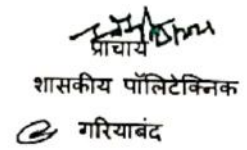 प्राचार्य
शासकीय पॉलिटेक्निक
गरियाबंद